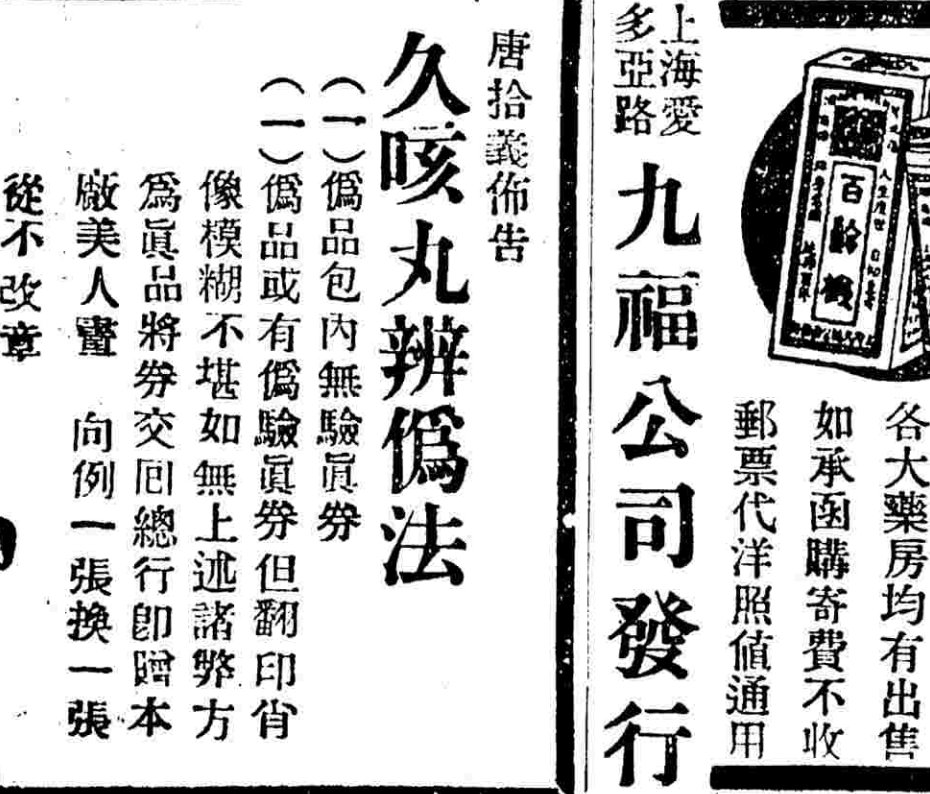 各大藥房均有出售
如承函購寄費不收
郵票代洋照值通用
百齡機
上海愛
多亞路
九福公司發行
唐拾義佈告
久咳丸辨僞法
（一）僞品包內無驗眞券
（一）僞品或有僞驗眞券但翻印肖
像模糊不堪如無上述諸弊方
爲眞品將券交囘總行卽贈本
廠美人畫 向例一張換一張
從不改章